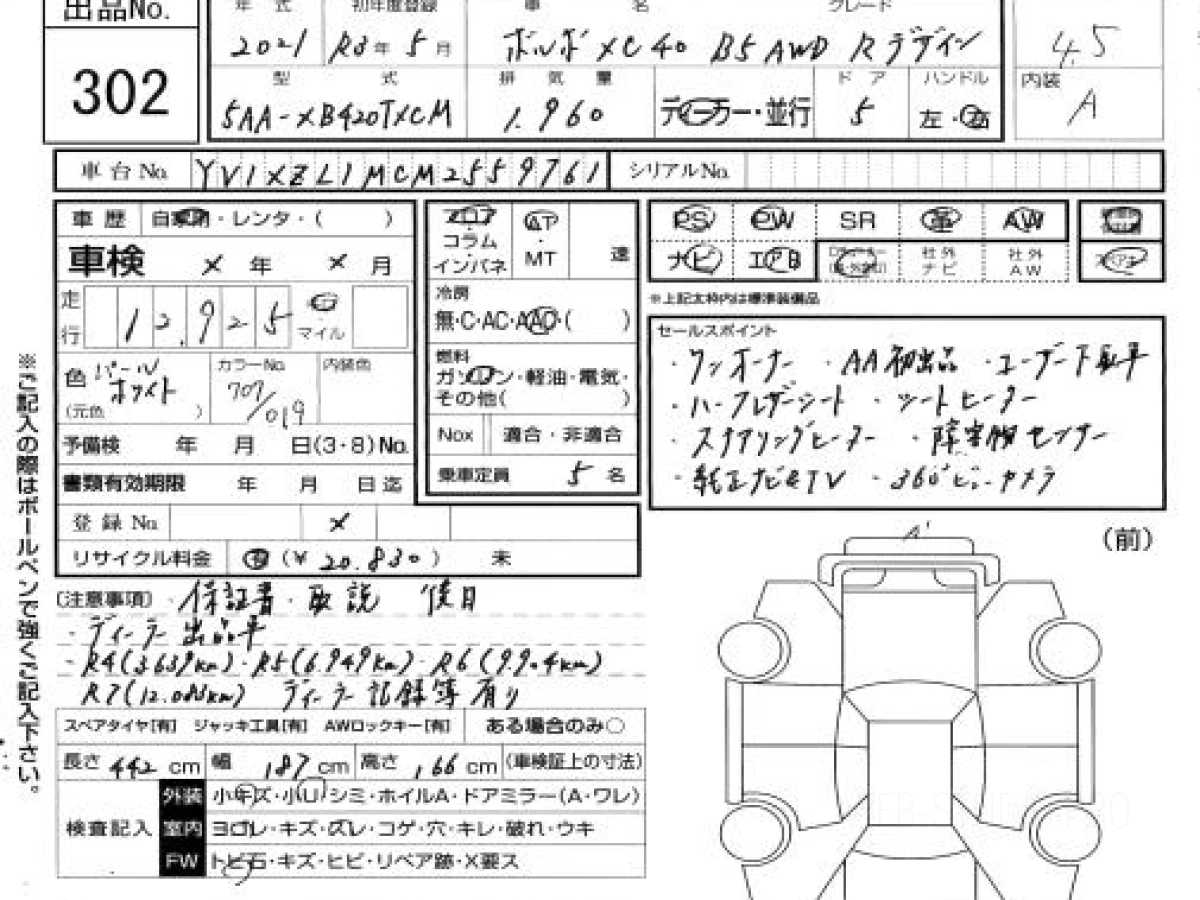 出品No.
302
年式 初年度登録 車名 グレード
2021 R3年 5月 ボルボ XC40 B5 AWD Rデザイン 4.5
型式 排気量 ドア ハンドル 内装
5AA-XB420TXCM 1.960 ディーラー・並行 5 左・右 A
車台No. YV1XZL1MCM2559761 シリアルNo.
車歴 自家用・レンタ・( )
車検 × 年 × 月
走行 12.925 マイル
色 パールホワイト (元色 )
カラーNo. 707/019
内装色
予備検 年 月 日(3・8)No.
書類有効期限 年 月 日迄
登録No. ×
リサイクル料金 (¥ 20.830) 未
フロア
コラム
インパネ
AT・MT 速
冷房
無・C・AC・AAC・( )
燃料
ガソリン・軽油・電気・
その他( )
Nox 適合・非適合
乗車定員 5名
PS PW SR 革 AW
ナビ エアB 社外ナビ 社外AW
※上記太枠内は標準装備品
セールスポイント
・ワンオーナー ・AA初出品 ・ユーザー下取車
・ハーフレザーシート ・シートヒーター
・ステアリングヒーター ・障害物センサー
・純正ナビ&TV ・360°ビューカメラ
(前)
A'
(注意事項)・保証書・取説 後日
・ディーラー出品車
・R4(3.639km)・R5(6.949km)・R6(9.904km)
R7(12.088km) ディーラー記録簿有り
スペアタイヤ[有] ジャッキ工具[有] AWロックキー[有] ある場合のみ○
長さ 442 cm 幅 187 cm 高さ 166 cm (車検証上の寸法)
検査記入
外装 小キズ・小U/シミ・ホイルA・ドアミラー(A・ワレ)
室内 ヨゴレ・キズ・ズレ・コゲ・穴・キレ・破れ・ウキ
FW トビ石・キズ・ヒビ・リペア跡・X要ス
※ご記入の際はボールペンで強くご記入下さい。